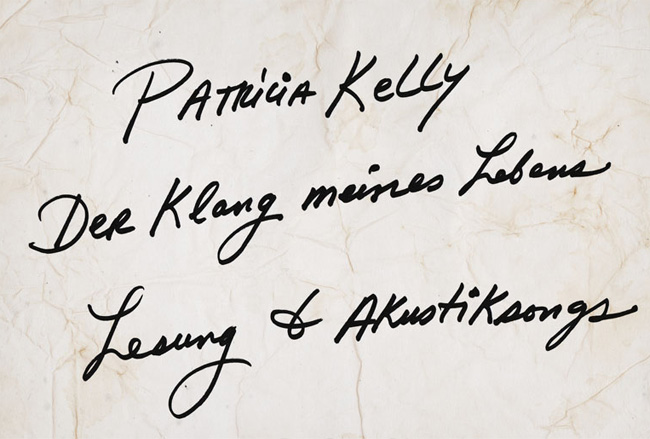 Patricia Kelly
Der Klang meines Lebens
Lesung & Akustiksongs